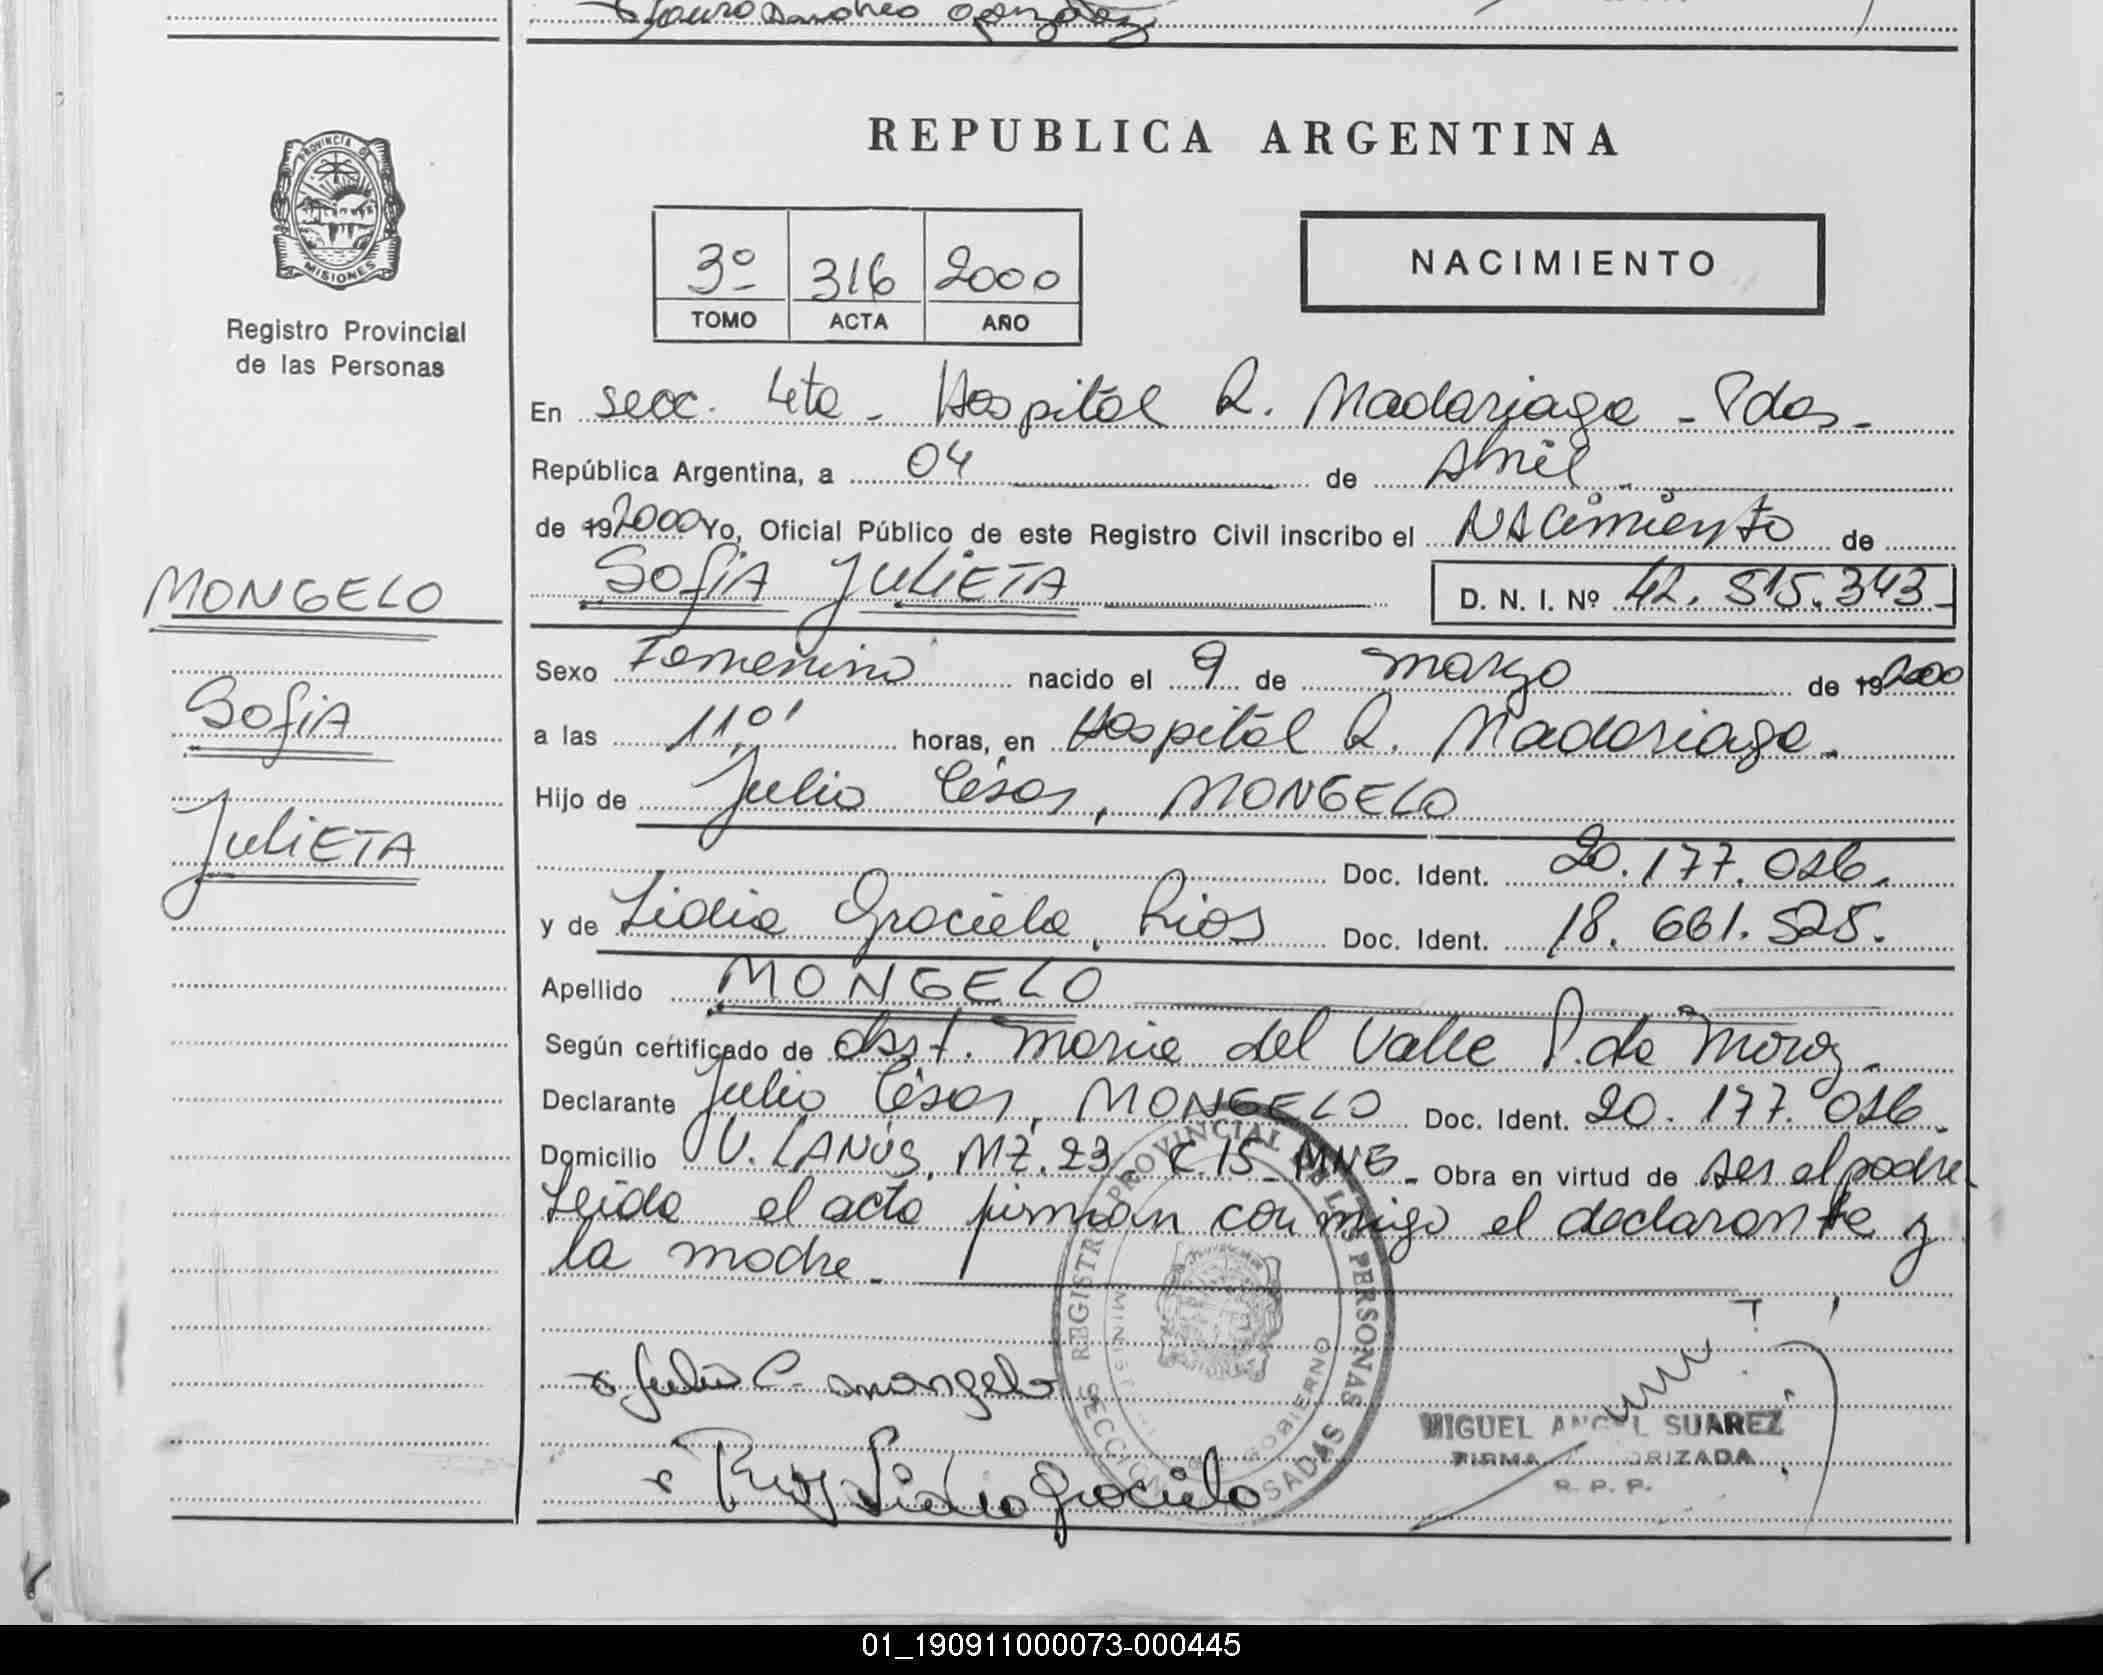 PROVINCIA DE
MISIONES
Registro Provincial
de las Personas
MONGELO
Sofia
JULIETA
REPUBLICA ARGENTINA
3º 316 2000
TOMO ACTA AÑO
NACIMIENTO
En secc. 4ta - Hospital R. Madariaga - Pdas -
República Argentina, a 04 de Abril
de 19 2000 Yo, Oficial Público de este Registro Civil inscribo el NACimiento de
Sofia JULIETA D. N. I. Nº 42.515.343-
Sexo Femenino nacido el 9 de marzo de 19 2000
a las 11,01 horas, en Hospital R. Madariaga.
Hijo de Julio César, MONGELO
Doc. Ident. 20.177.016.
y de Lidia Graciela, Rios Doc. Ident. 18.661.525.
Apellido MONGELO
Según certificado de obst. Maria del Valle P. de
Declarante Julio César, MONGELO Doc. Ident. 20.177.016.
Domicilio V. LANÚS, MZ. 23 C. 15 - MNS - Obra en virtud de ser el padre
Leida el acta firman conmigo el declarante y
la madre -
REGISTRO PROVINCIAL DE LAS PERSONAS
GOBIERNO
x Julio C. mongelo
x Rios Lidia Graciela
MIGUEL ANGEL SUAREZ
FIRMA AUTORIZADA
R. P. P.
01_190911000073-000445